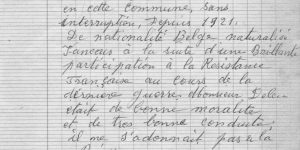 en cette commune, sans
interruption, depuis 1921.
De nationalité Belge naturalisé
Français à la suite d'une Brillante
participation à la Résistance
Française au cours de la
dernière guerre, Monsieur
était de bonne moralité
et de très bonne conduite
il ne s'adonnait pas à la